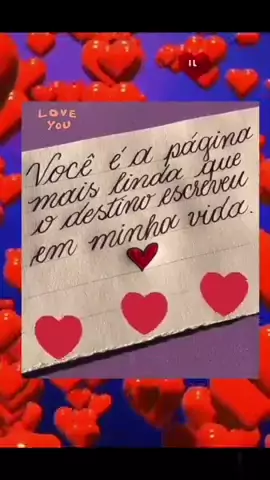 LOVE
YOU
Você é a página
mais linda que
o destino escreveu
em minha vida.